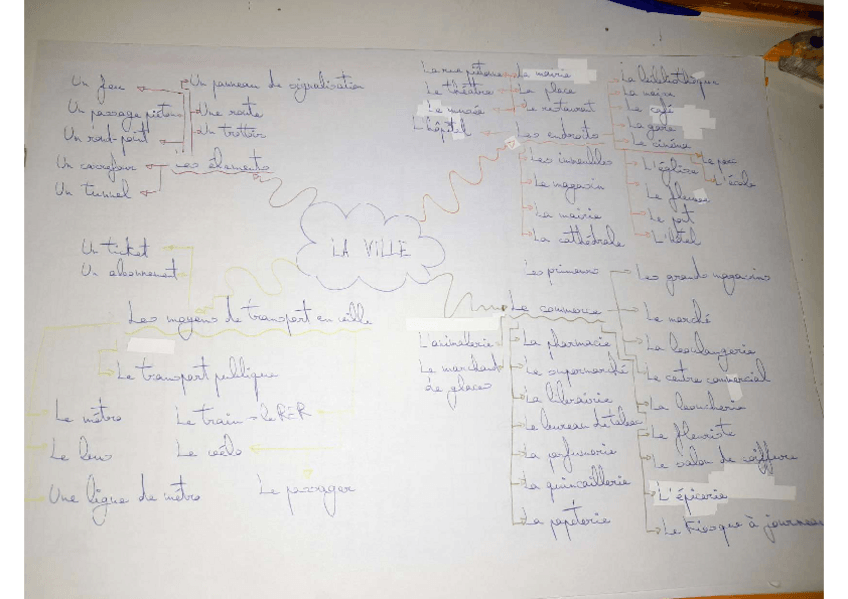 Un feu
Un panneau de signalisation
Un passage piéton
Une route
Un rond-point
Un trottoir
Un carrefour
Les élements
Un tunnel
La rue piétonne
La mairie
Le théâtre
La place
Le musée
Le restaurant
L'hôpital
Les endroits
Le café
La gare
Le cinéma
Le parc
L'école
Les immeubles
L'église
Le magasin
La mairie
Le port
La cathédrale
L'hôtel
LA VILLE
Un ticket
Un abonnement
Les moyens de transport en ville
Le transport publique
Le métro
Le train → le RER
Le bus
Le vélo
Une ligne de métro
Le passager
Les primeurs
Les grands magasins
Le commerce
Le marché
L'animallerie
La pharmacie
La boulangerie
Le marchand
de glaces
Le supermarché
Le centre commercial
La librairie
La boucherie
Le bureau de tabac
Le fleuriste
La parfumerie
Le salon de coiffure
La quincaillerie
L'épicerie
La papéterie
Le Kiosque à journeaux